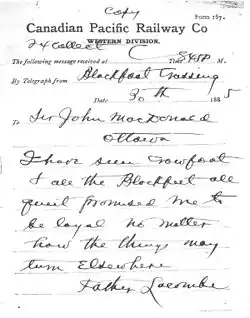 Copy
Form 167.
Canadian Pacific Railway Co
WESTERN DIVISION.
24 Collect
The following message received at
Time 545P M.
By Telegraph from Blackfoot Crossing
Date 30th 1885
To Sir John MacDonald
Ottawa
I have seen Crowfoot
I all the Blackfeet all
quiet promised me to
be loyal no matter
how the things may
turn Elsewhere
Father Lacombe